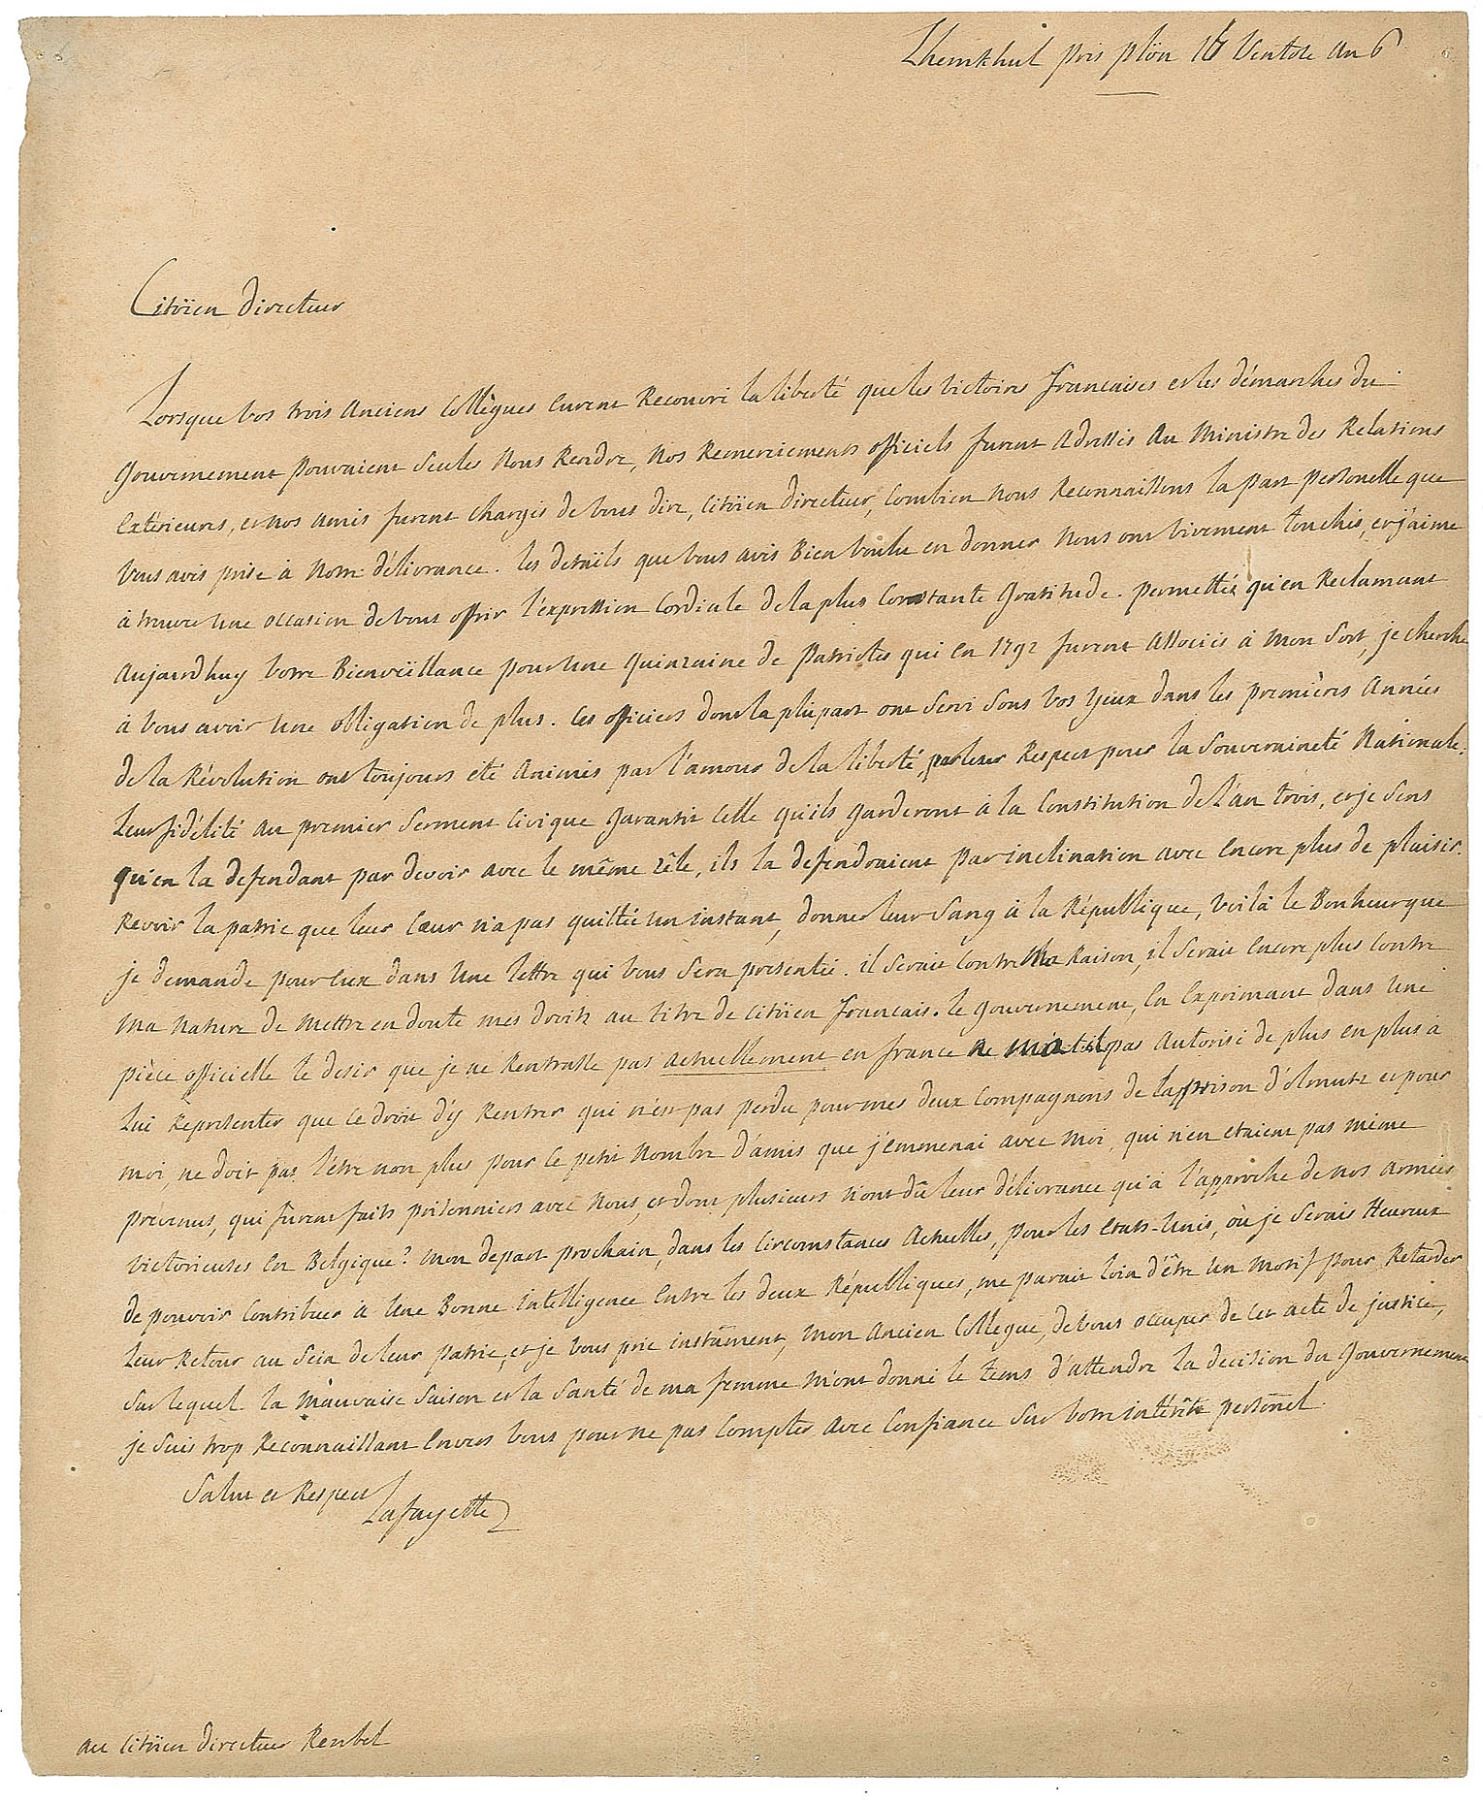 Lhemkhul près plön 16 Ventose an 6
Citöien directeur
Lorsque vos trois Anciens Collègues eurent Recouvré la liberté que les victoires francaises et les démarches du
gouvernement pouvaient seules nous Rendre, nos Remerciements officiels furent adressés au Ministre des Relations
Extérieures, et nos amis furent chargés de vous dire, Citöien directeur, combien nous Reconnaissons la part personelle que
vous avés prise à notre délivrance. les détails que vous avés Bien voulu en donner nous ont vivement touchés, et j'aime
à trouver une occasion de vous offrir l'expression Cordiale de la plus Constante Gratitude. permettés qu'en Reclamant
aujourdhuy votre Bienveïllance pour une quinzaine de Patriotes qui en 1792 furent associés à mon sort, je cherche
à vous avoir une obligation de plus. Ces officiers dont la plupart ont servi sous vos yeux dans les premières Années
de la Révolution ont toujours été animés par l'amour de la liberté, par leur Respect pour la Souveraineté Nationale.
Leur fidélité au premier Serment Civique garantit celle qu'ils garderont à la Constitution de l'an trois, et je sens
qu'en la defendant par devoir avec le même zêle, ils la defendraient par inclination avec encore plus de plaisir.
Revoir la patrie que leur Cœur n'a pas quittée un instant, donner leur Sang à la République, voilà le Bonheur que
je demande pour eux dans une lettre qui vous sera presentée. il serait contre Ma Raison, il serait encore plus contre
ma nature de mettre en doute mes droits au titre de citöien francais. le gouvernement, en exprimant dans une
pièce officielle le desir que je ne Rentrasse pas actuellement en france ne m'a t'il pas autorisé de plus en plus à
lui Représenter que ce droit d'y Rentrer qui n'est pas perdu pour mes deux Compagnons de la prison d'olmutz et pour
moi, ne doit pas l'être non plus pour le petit nombre d'amis que j'emmenai avec moi, qui n'en etaient pas même
prévenus, qui furent faits prisonniers avec nous, et dont plusieurs n'ont dû leur délivrance qu'à l'approche de nos armées
victorieuses en Belgique? mon depart prochain, dans les Circonstances Actuelles, pour les etats-unis, où je serais Heureux
de pouvoir contribuer à une Bonne intelligence entre les deux Républiques, me parait loin d'être un motif pour Retarder
leur Retour au sein de leur patrie, et je vous prie instament, mon ancien Collegue, de vous occuper de cet acte de justice,
sur lequel la mauvaise saison et la santé de ma femme m'ont donné le tems d'attendre la decision du Gouvernement
je suis trop Reconnaissant envers vous pour ne pas compter avec confiance sur votre intérêt personel.
Salut et Respect
Lafayette
au citöien directeur Reubel